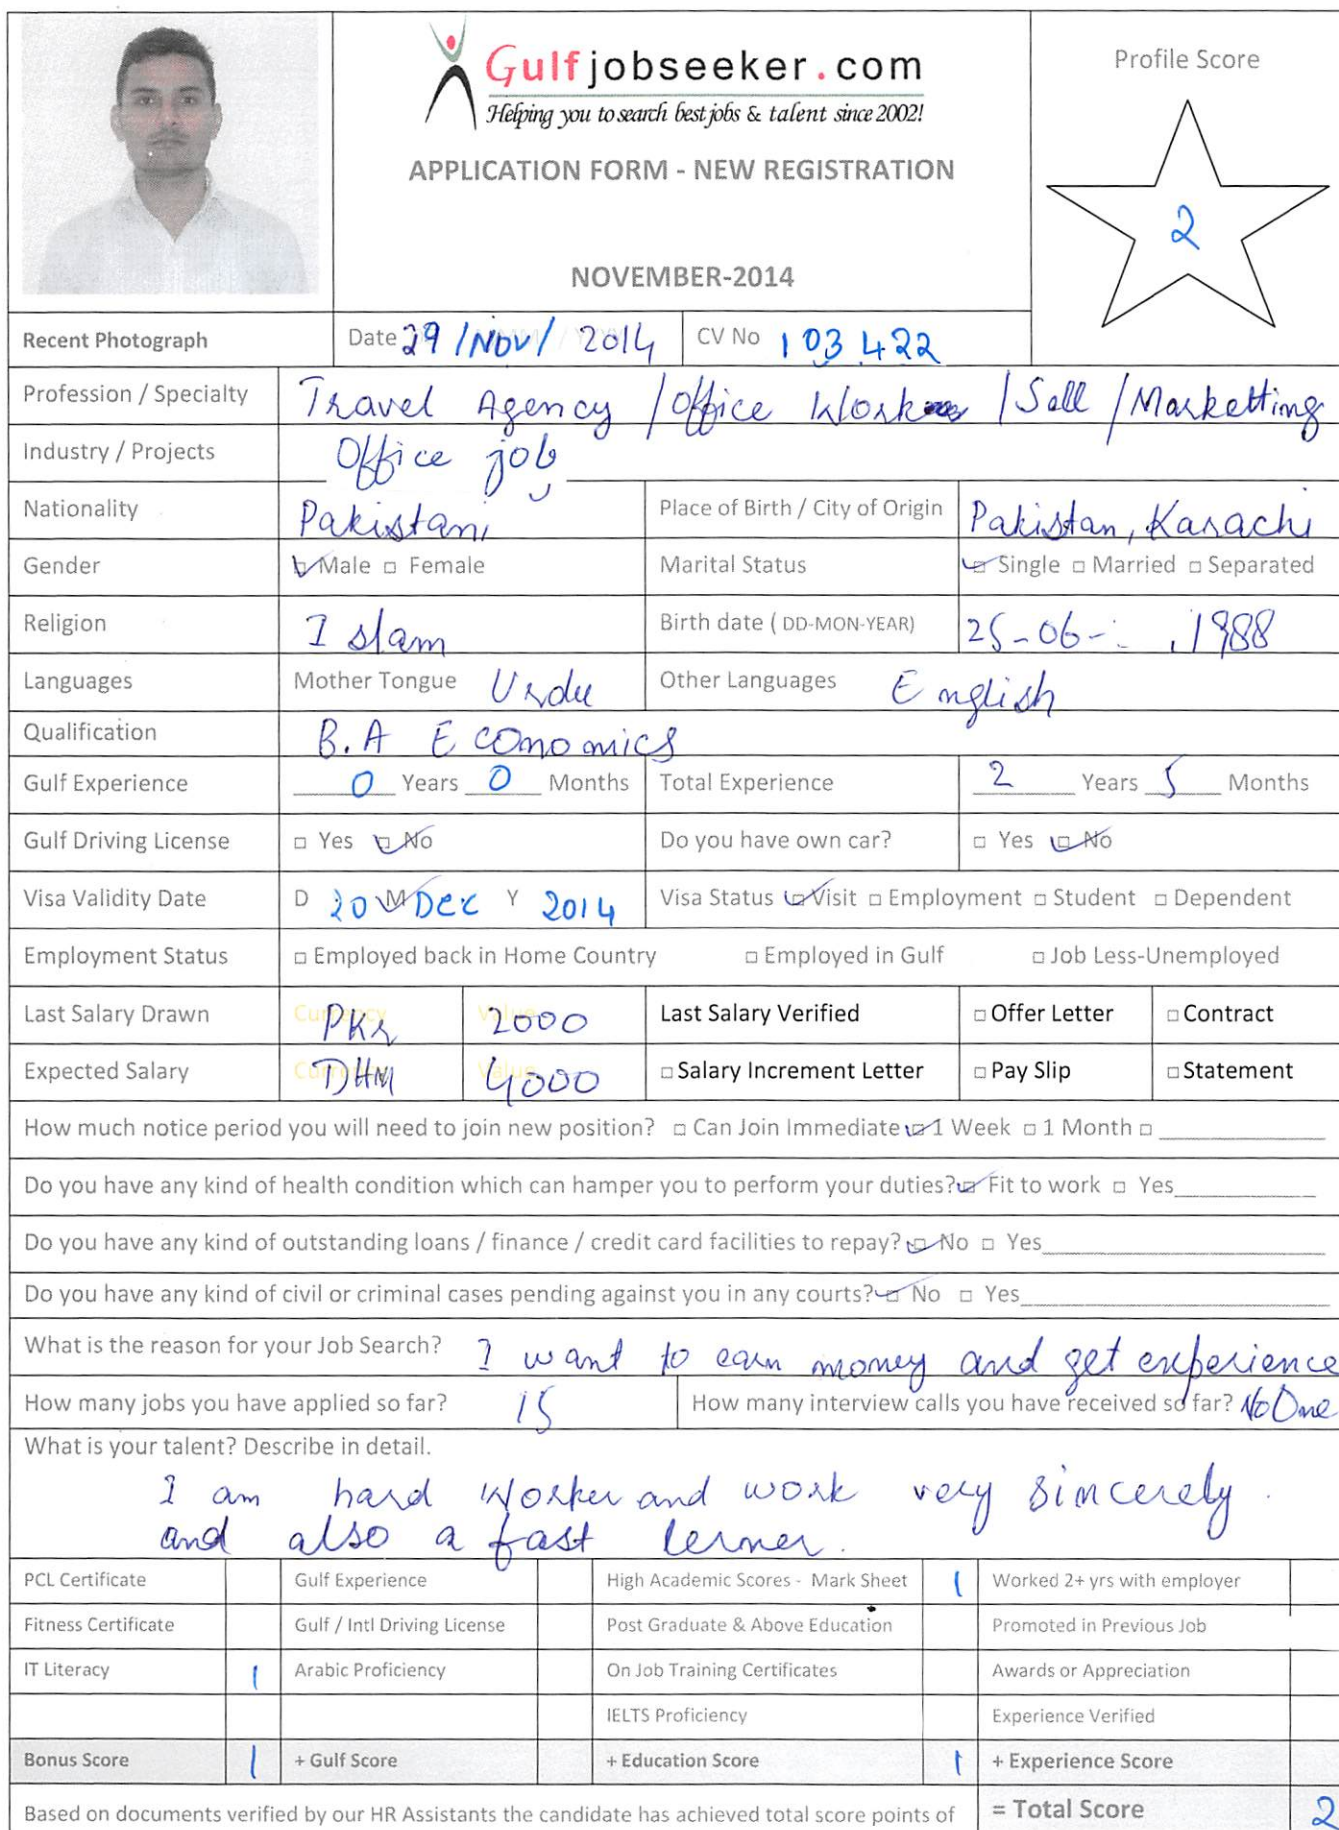 Gulfjobseeker.com
Helping you to search best jobs & talent since 2002!
APPLICATION FORM - NEW REGISTRATION
NOVEMBER-2014
Profile Score
2
Recent Photograph
Date 29 /Nov/ 2014
CV No 103422
Profession / Specialty Travel Agency / Office Worker / Sell / Marketting
Industry / Projects Office job
Nationality Pakistani
Place of Birth / City of Origin Pakistan, Karachi
Gender Male Female
Marital Status Single Married Separated
Religion Islam
Birth date ( DD-MON-YEAR) 25-06- 1988
Languages Mother Tongue Urdu
Other Languages English
Qualification B.A Economics
Gulf Experience 0 Years 0 Months
Total Experience 2 Years 5 Months
Gulf Driving License Yes No
Do you have own car? Yes No
Visa Validity Date D 20 M Dec Y 2014
Visa Status Visit Employment Student Dependent
Employment Status Employed back in Home Country Employed in Gulf Job Less-Unemployed
Last Salary Drawn Currency PKR Value 2000
Last Salary Verified Offer Letter Contract
Expected Salary Currency DHM Value 4000
Salary Increment Letter Pay Slip Statement
How much notice period you will need to join new position? Can Join Immediate 1 Week 1 Month
Do you have any kind of health condition which can hamper you to perform your duties? Fit to work Yes
Do you have any kind of outstanding loans / finance / credit card facilities to repay? No Yes
Do you have any kind of civil or criminal cases pending against you in any courts? No Yes
What is the reason for your Job Search? I want to earn money and get experience
How many jobs you have applied so far? 15
How many interview calls you have received so far? No One
What is your talent? Describe in detail.
I am hard Worker and work very sincerely.
and also a fast lerner.
PCL Certificate Gulf Experience High Academic Scores - Mark Sheet 1 Worked 2+ yrs with employer
Fitness Certificate Gulf / Intl Driving License Post Graduate & Above Education Promoted in Previous Job
IT Literacy 1 Arabic Proficiency On Job Training Certificates Awards or Appreciation
IELTS Proficiency Experience Verified
Bonus Score 1 + Gulf Score + Education Score 1 + Experience Score
Based on documents verified by our HR Assistants the candidate has achieved total score points of = Total Score 2